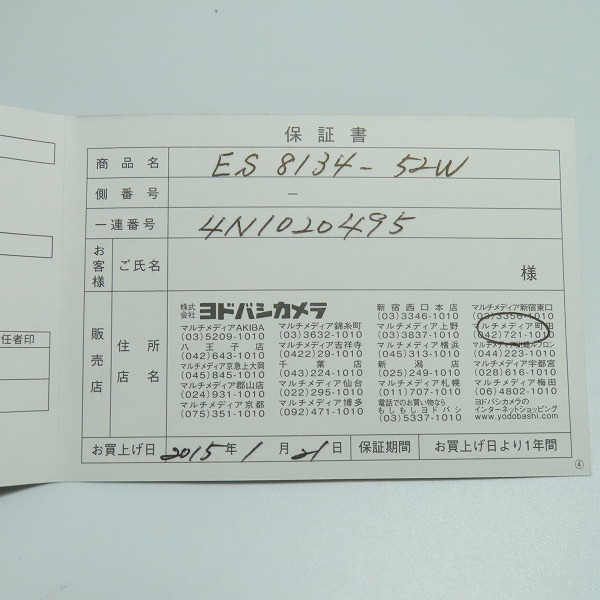 保証書
商品名 ES 8134-52W
側番号 －
一連番号 4N1020495
お客様 ご氏名 様
販売店 住所 店名
株式会社 ヨドバシカメラ
マルチメディアAKIBA (03)5209-1010
八王子店 (042)643-1010
マルチメディア京急上大岡 (045)845-1010
マルチメディア郡山店 (024)931-1010
マルチメディア京都 (075)351-1010
マルチメディア錦糸町 (03)3632-1010
マルチメディア吉祥寺 (0422)29-1010
千葉店 (043)224-1010
マルチメディア仙台 (022)295-1010
マルチメディア博多 (092)471-1010
新宿西口本店 (03)3346-1010
マルチメディア上野 (03)3837-1010
マルチメディア横浜 (045)313-1010
新潟店 (025)249-1010
マルチメディア札幌 (011)707-1010
電話でのお買い物なら
もしもしヨドバシ
(03)5337-1010
マルチメディア新宿東口 (03)3356-1010
マルチメディア町田 (042)721-1010
(044)223-1010
マルチメディア宇都宮 (028)616-1010
マルチメディア梅田 (06)4802-1010
ヨドバシカメラの
インターネットショッピング
www.yodobashi.com
お買上げ日 2015年1月21日 保証期間 お買上げ日より1年間
④
任者印